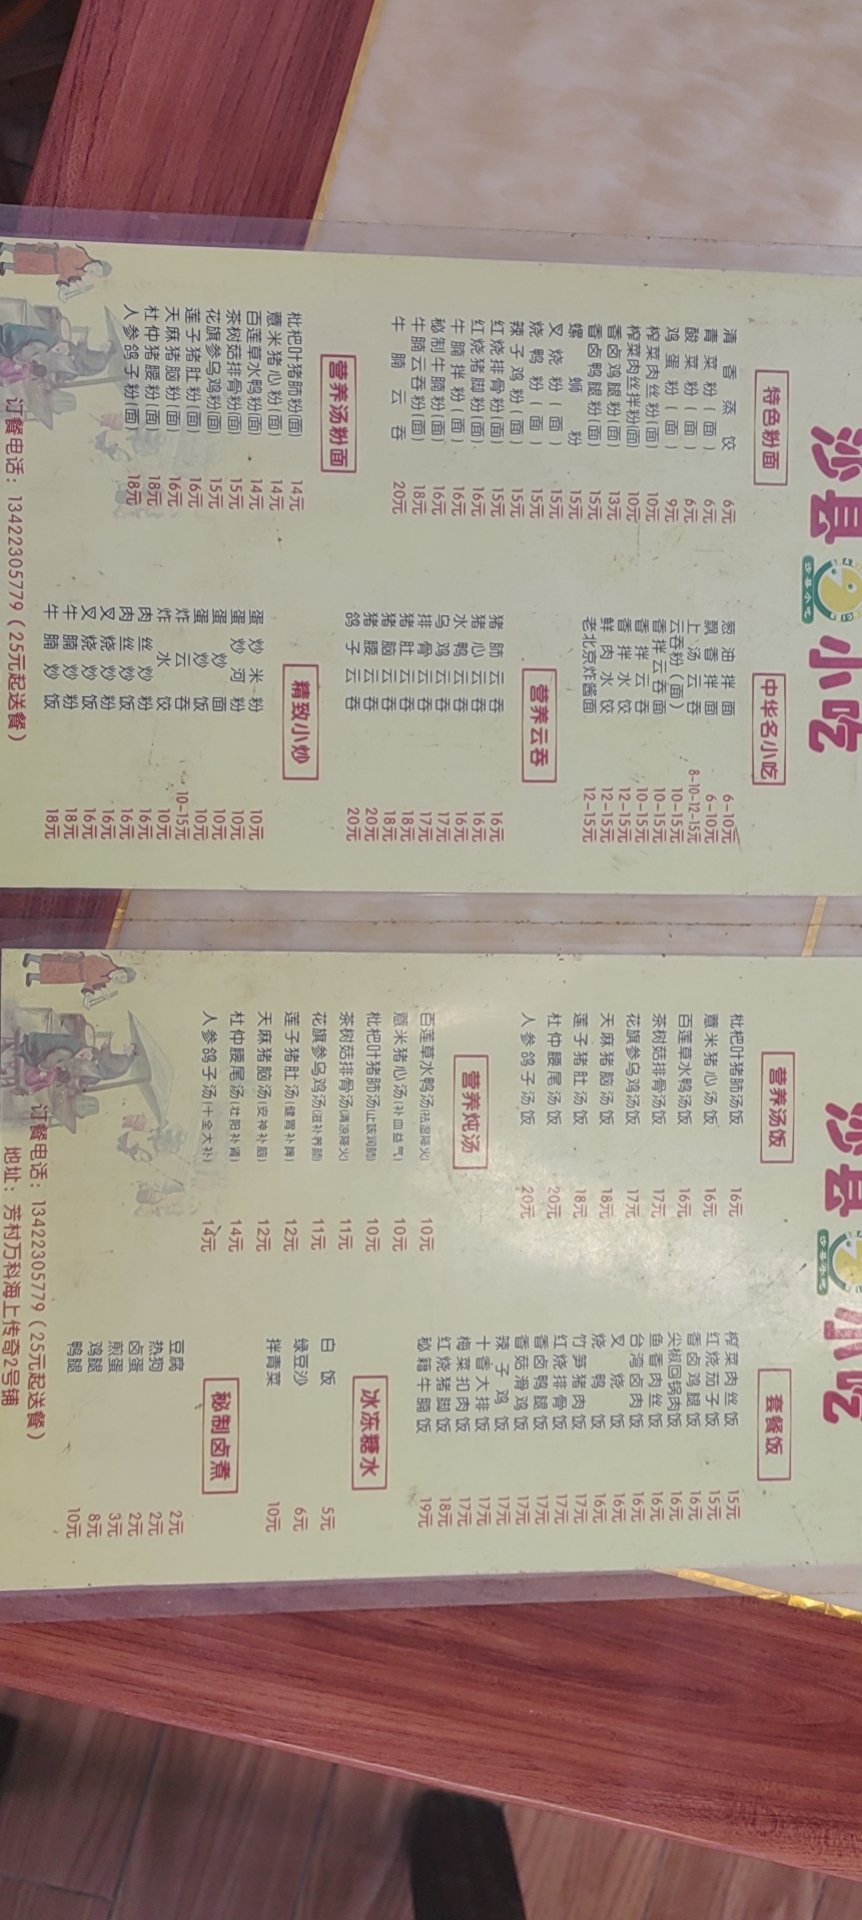 沙县小吃
沙县小吃
特色粉面
清香蒸饺 6元
青菜粉(面) 6元
酸菜粉(面) 6元
鸡蛋粉(面) 9元
榨菜肉丝粉(面) 10元
榨菜肉丝拌粉(面) 10元
香卤鸡腿粉(面) 13元
香卤鸭腿粉(面) 15元
螺蛳粉 15元
叉烧粉(面) 15元
烧鸭粉(面) 15元
辣子鸡粉(面) 15元
红烧排骨粉(面) 15元
红烧猪脚粉(面) 16元
牛腩拌粉(面) 16元
秘制牛腩粉(面) 16元
牛腩云吞粉(面) 18元
牛腩云吞 20元
营养汤粉面
枇杷叶猪肺粉(面) 14元
薏米猪心粉(面) 14元
百莲草水鸭粉(面) 14元
茶树菇排骨粉(面) 15元
花旗参乌鸡粉(面) 15元
莲子猪肚粉(面) 16元
天麻猪脑粉(面) 16元
杜仲猪腰粉(面) 18元
人参鸽子粉(面) 18元
中华名小吃
葱油拌面 6-10元
飘香拌面 6-10元
上汤云吞 8-10-12-15元
云吞粉(面) 10-15元
香拌云吞面 10-15元
香拌云吞 10-15元
香拌水饺 12-15元
鲜肉水饺 12-15元
老北京炸酱面 12-15元
营养云吞
猪肺云吞 16元
猪心云吞 16元
水鸭云吞 16元
乌鸡云吞 17元
排骨云吞 17元
猪肚云吞 18元
猪脑云吞 18元
猪腰云吞 20元
鸽子云吞 20元
精致小炒
蛋炒米粉 10元
蛋炒河粉 10元
蛋炒面 10元
蛋炒饭 10元
炸云吞 10-15元
炸水饺 10元
肉丝炒粉 16元
肉丝炒饭 16元
叉烧炒粉 16元
叉烧炒饭 16元
牛腩炒粉 18元
牛腩炒饭 18元
订餐电话：13422305779（25元起送餐）
沙县小吃
沙县小吃
营养汤饭
枇杷叶猪肺汤饭 16元
薏米猪心汤饭 16元
百莲草水鸭汤饭 16元
茶树菇排骨汤饭 17元
花旗参乌鸡汤饭 17元
天麻猪脑汤饭 18元
莲子猪肚汤饭 18元
杜仲腰尾汤饭 20元
人参鸽子汤饭 20元
营养炖汤
百莲草水鸭汤(祛湿降火) 10元
薏米猪心汤(补血益气) 10元
枇杷叶猪肺汤(止咳润肺) 10元
茶树菇排骨汤(清凉降火) 11元
花旗参乌鸡汤(滋补养颜) 11元
莲子猪肚汤(健胃补脾) 12元
天麻猪脑汤(安神补脑) 12元
杜仲腰尾汤(壮阳补肾) 14元
人参鸽子汤(十全大补) 14元
套餐饭
榨菜肉丝饭 15元
红烧茄子饭 15元
香卤鸡腿饭 16元
尖椒回锅肉饭 16元
鱼香肉丝饭 16元
台湾卤肉饭 16元
叉烧饭 16元
烧鸭饭 16元
竹笋猪肉饭 17元
红烧排骨饭 17元
香卤鸭腿饭 17元
香菇滑鸡饭 17元
辣子鸡饭 17元
十香大排饭 17元
梅菜扣肉饭 17元
红烧猪脚饭 18元
秘籍牛腩饭 19元
冰冻糖水
白饭 5元
绿豆沙 6元
拌青菜 10元
秘制卤煮
豆腐 2元
热狗 2元
卤蛋 2元
煎蛋 3元
鸡腿 8元
鸭腿 10元
订餐电话：13422305779（25元起送餐）
地址：芳村万科海上传奇2号铺